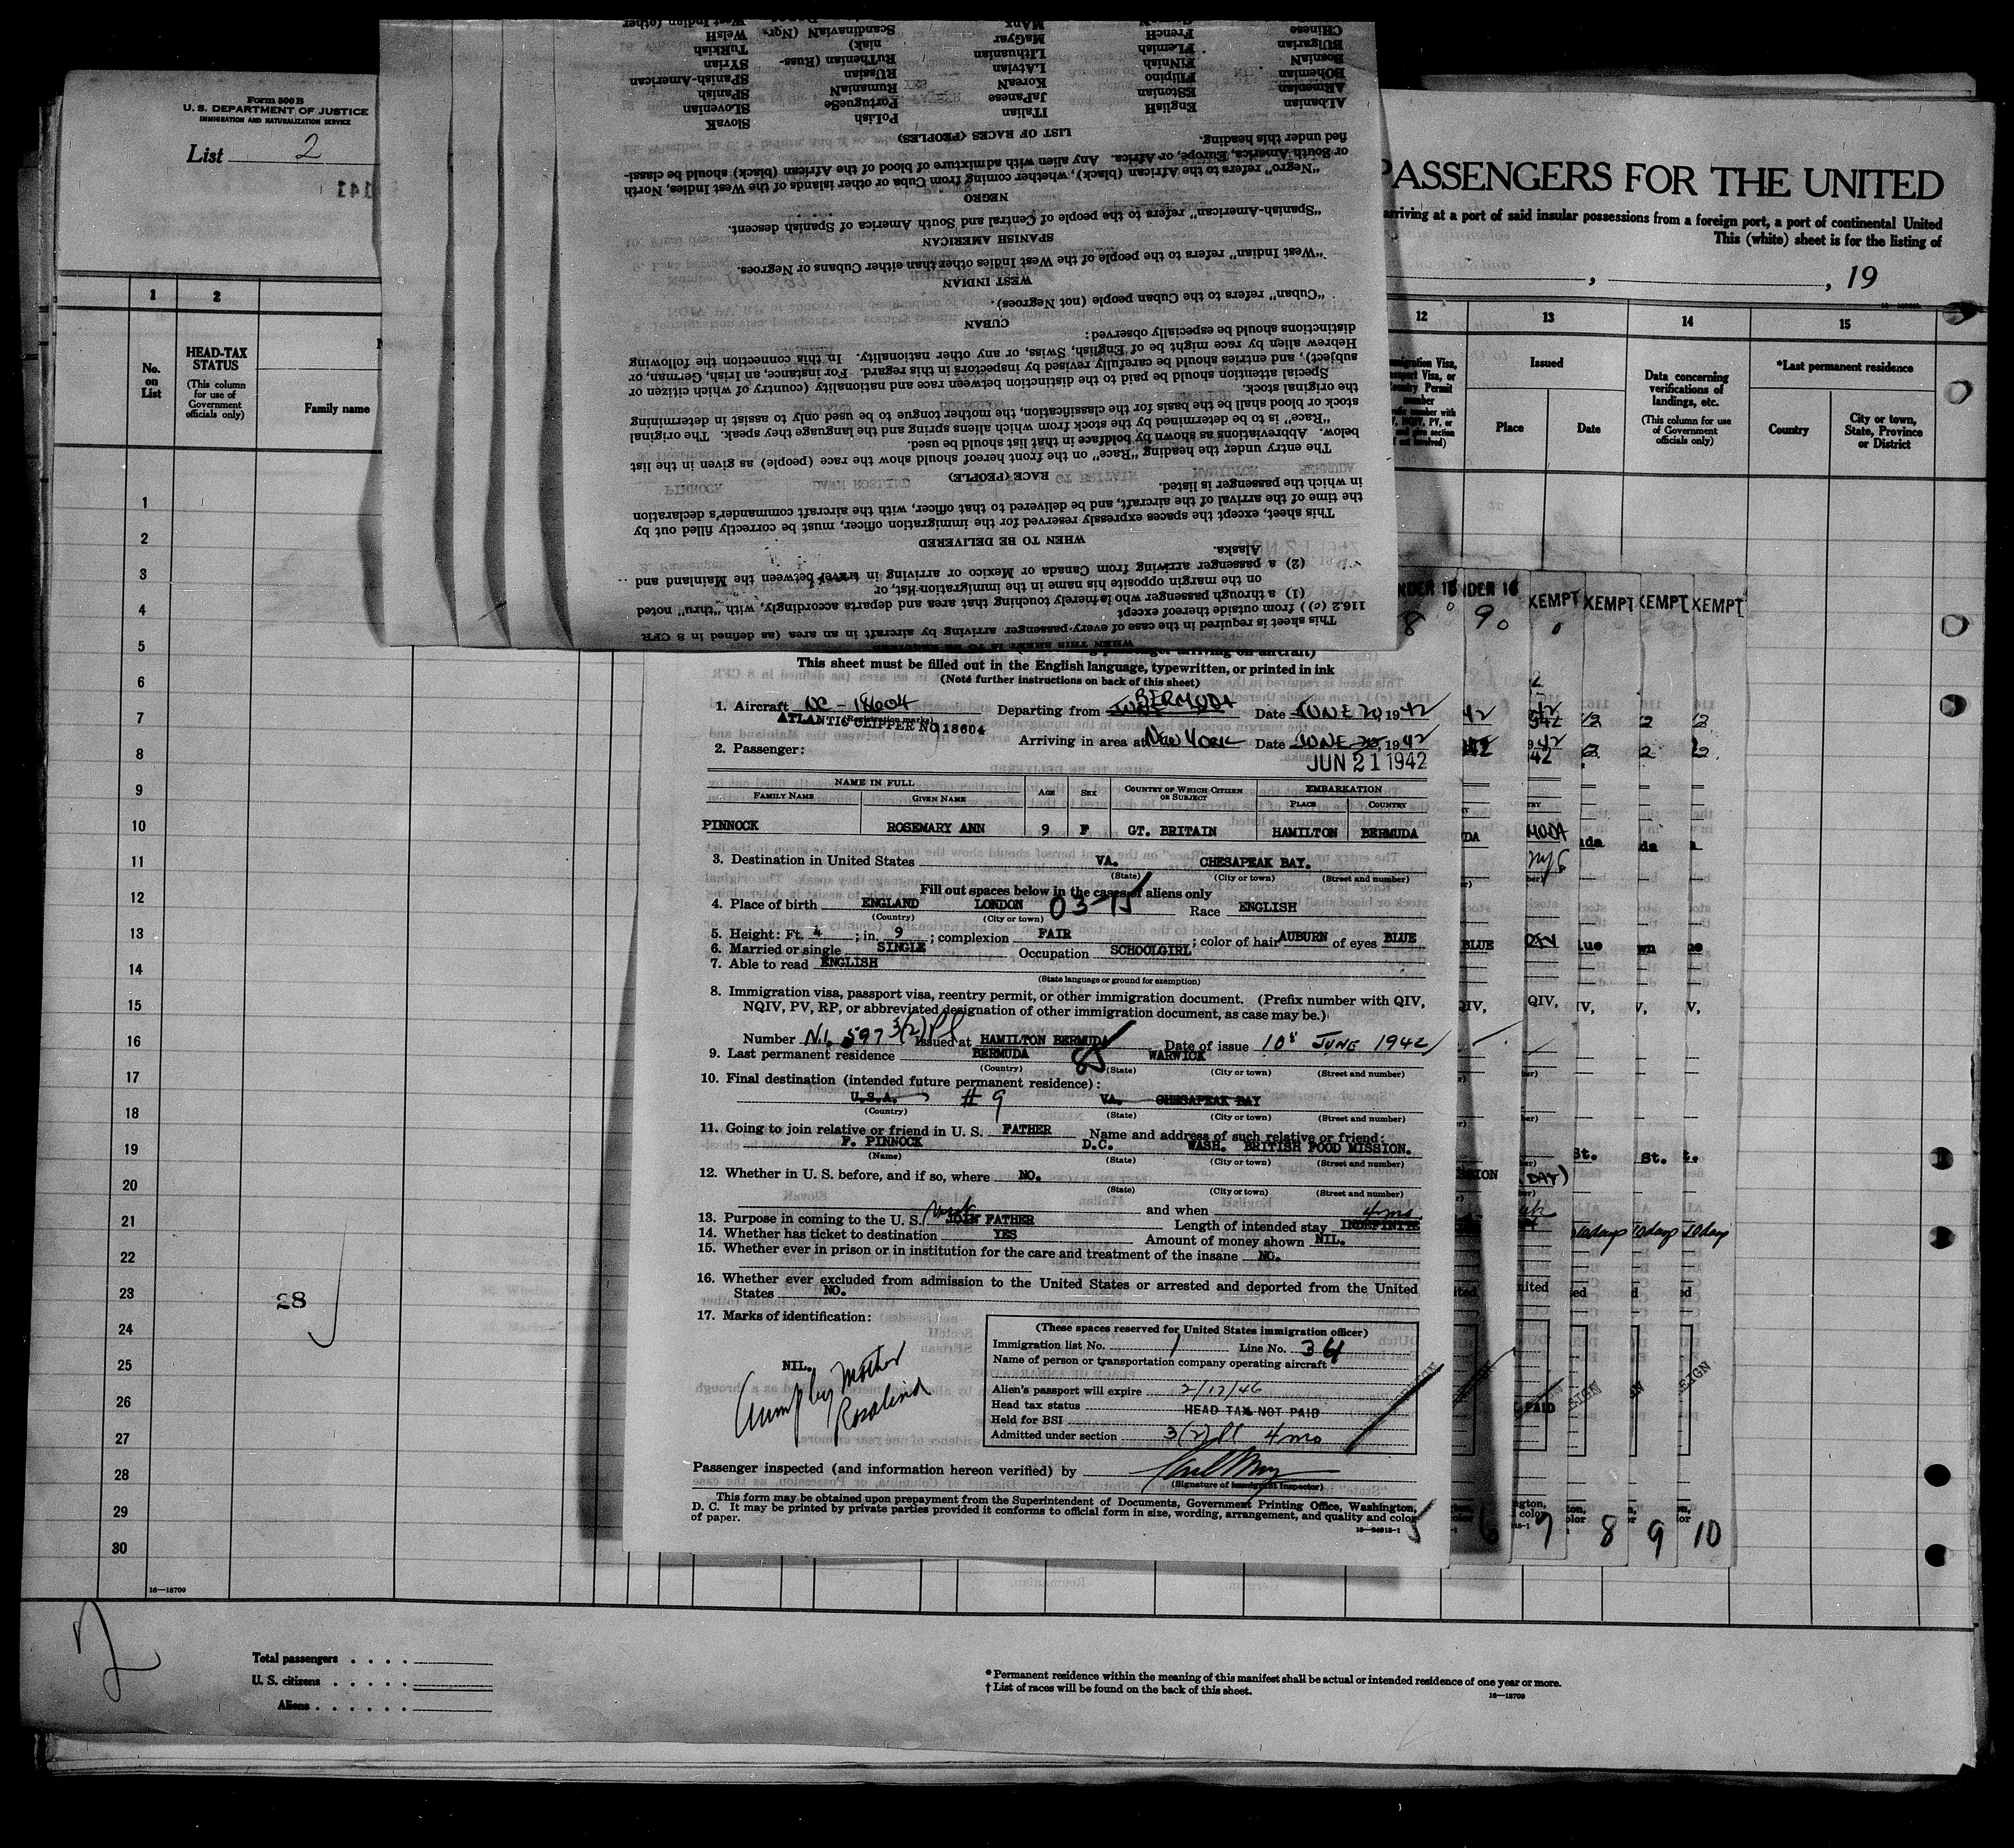 Form 500 B
U. S. DEPARTMENT OF JUSTICE
IMMIGRATION AND NATURALIZATION SERVICE
List 2
PASSENGERS FOR THE UNITED
arriving at a port of said insular possessions from a foreign port, a port of continental United
This (white) sheet is for the listing of
, 19
1 2
No. on List
HEAD-TAX STATUS
(This column for use of Government officials only)
Family name
12 13 14 15
Issued
Place Date
Data concerning verifications of landings, etc.
(This column for use of Government officials only)
*Last permanent residence
Country
City or town, State, Province or District
1
2
3
4
5
6
7
8
9
10
11
12
13
14
15
16
17
18
19
20
21
22
23
24
25
26
27
28
29
30
28
16—18709
Total passengers . . . .
U. S. citizens . . . . .
Aliens . . . . . .
* Permanent residence within the meaning of this manifest shall be actual or intended residence of one year or more.
† List of races will be found on the back of this sheet.
16—18709
This sheet is required in the case of every passenger arriving by aircraft in an area (as defined in 8 CFR
116.2 (c)) from outside thereof except
(1) a through passenger who is merely touching that area and departs accordingly, with "thru" noted
on the margin opposite his name in the immigration list, or
(2) a passenger arriving from Canada or Mexico or arriving in travel between the Mainland and
Alaska.
WHEN TO BE DELIVERED
This sheet, except the spaces expressly reserved for the immigration officer, must be correctly filled out by
the time of the arrival of the aircraft, and be delivered to that officer, with the aircraft commander's declaration
in which the passenger is listed.
RACE (PEOPLE)
The entry under the heading "Race" on the front hereof should show the race (people) as given in the list
below. Abbreviations as shown by boldface in that list should be used.
"Race" is to be determined by the stock from which aliens spring and the language they speak. The original
stock or blood shall be the basis for the classification, the mother tongue to be used only to assist in determining
the original stock.
Special attention should be paid to the distinction between race and nationality (country of which citizen or
subject), and entries should be carefully revised by inspectors in this regard. For instance, an Irish, German, or
Hebrew alien by race might be of English, Swiss, or any other nationality. In this connection the following
distinctions should be especially observed:
CUBAN
"Cuban" refers to the Cuban people (not Negroes).
WEST INDIAN
"West Indian" refers to the people of the West Indies other than either Cubans or Negroes.
SPANISH AMERICAN
"Spanish-American" refers to the people of Central and South America of Spanish descent.
NEGRO
"Negro" refers to the African (black), whether coming from Cuba or other islands of the West Indies, North
or South America, Europe, or Africa. Any alien with admixture of blood of the African (black) should be classi-
fied under this heading.
LIST OF RACES (PEOPLES)
ALbanian EnglisH ITalian PoLish SlovaK
ARmenian EStonian JaPanese PortuguSe SLOvenian
BOhemian FIlipino KoreaN RumaniaN SPanish
BosniaN FINnish LAtvian RUssian SPanish-American
BUlgarian FLemish LIthuanian RuThenian (Russ- SYrian
CHinese FrencH MaGyar niak) TuRkish
MAnx ScandinaviaN WelsH
This sheet must be filled out in the English language, typewritten, or printed in ink
(Note further instructions on back of this sheet)
1. Aircraft NC-18604 Departing from BERMUDA Date JUNE 20, 1942
(Registration marks)
ATLANTIC CLIPPER NC18604
Arriving in area at NEW YORK Date JUNE 20, 1942
2. Passenger:
JUN 21 1942
NAME IN FULL
FAMILY NAME GIVEN NAME AGE SEX COUNTRY OF WHICH CITIZEN OR SUBJECT EMBARKATION PLACE COUNTRY
PINNOCK ROSEMARY ANN 9 F GT. BRITAIN HAMILTON BERMUDA
3. Destination in United States VA. CHESAPEAK BAY.
(State) (City or town) (Street and number)
Fill out spaces below in the cases of aliens only
4. Place of birth ENGLAND LONDON 03-75 Race ENGLISH
(Country) (City or town)
5. Height: Ft. 4 ; in. 9 ; complexion FAIR ; color of hair AUBURN of eyes BLUE
6. Married or single SINGLE Occupation SCHOOLGIRL
7. Able to read ENGLISH
(State language or ground for exemption)
8. Immigration visa, passport visa, reentry permit, or other immigration document. (Prefix number with QIV,
NQIV, PV, RP, or abbreviated designation of other immigration document, as case may be.)
Number N.I. 597 3(2) Issued at HAMILTON BERMUDA Date of issue 10 JUNE 1942
9. Last permanent residence BERMUDA 85 WARWICK
(Country) (State) (City or town) (Street and number)
10. Final destination (intended future permanent residence):
U.S.A. # 9 VA. CHESAPEAK BAY
(Country) (State) (City or town) (Street and number)
11. Going to join relative or friend in U. S. FATHER Name and address of such relative or friend:
F. PINNOCK D.C. WASH. BRITISH FOOD MISSION.
(Name) (State) (City or town) (Street and number)
12. Whether in U. S. before, and if so, where NO.
(State) (City or town) (Street and number)
and when
13. Purpose in coming to the U. S. visit JOIN FATHER Length of intended stay 4 mo INDEFINITE
14. Whether has ticket to destination YES Amount of money shown NIL.
15. Whether ever in prison or in institution for the care and treatment of the insane NO.
16. Whether ever excluded from admission to the United States or arrested and deported from the United
States NO.
17. Marks of identification:
NIL.
Accmp by Mother
Rosalind
(These spaces reserved for United States immigration officer)
Immigration list No. 1 Line No. 34
Name of person or transportation company operating aircraft
Alien's passport will expire 2/17/46
Head tax status HEAD TAX NOT PAID
Held for BSI
Admitted under section 3(2) 4 mo
Passenger inspected (and information hereon verified) by
(Signature of Immigrant Inspector)
This form may be obtained upon prepayment from the Superintendent of Documents, Government Printing Office, Washington,
D. C. It may be printed by private parties provided it conforms to official form in size, wording, arrangement, and quality and color
of paper.
16—24915-1
5 6 7 8 9 10